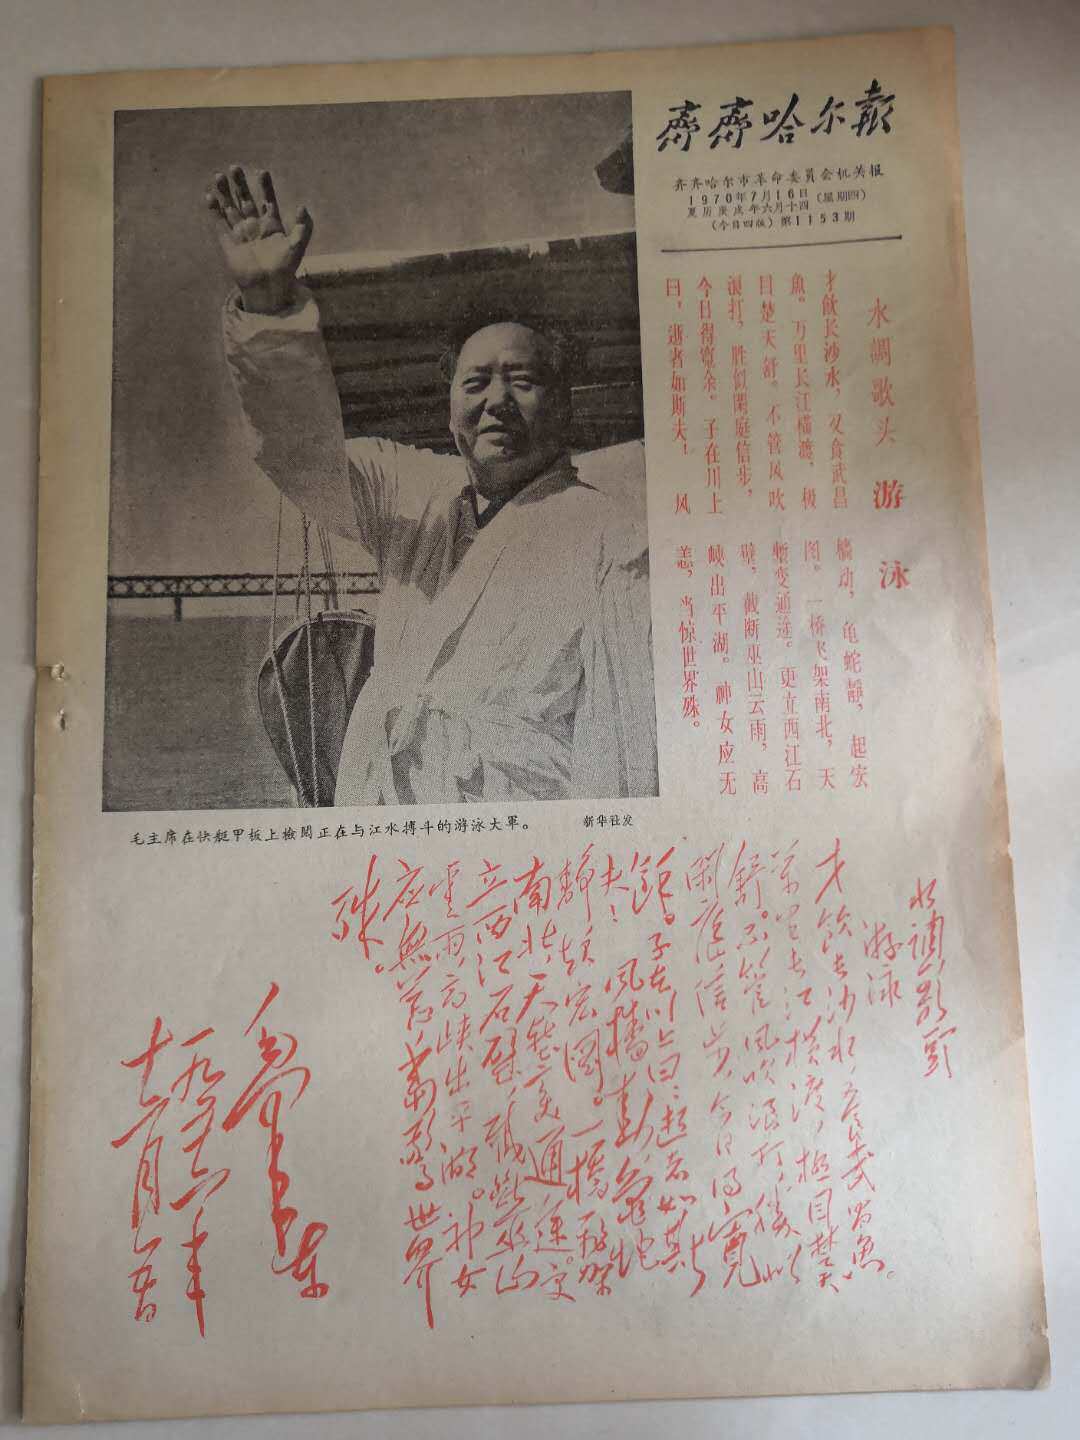 齊齊哈尔報
齐齐哈尔市革命委員会机关报
1970年7月16日
夏历庚戌年六月十四
(星期四)
(今日四版) 第1153期
水調歌头 游泳
才飲长沙水，又食武昌
魚。万里长江橫渡，极
目楚天舒。不管风吹
浪打，胜似閑庭信步，
今日得宽余。子在川上
曰：逝者如斯夫！ 风
檣动，龟蛇靜，起宏
图。一桥飞架南北，天
塹变通途。更立西江石
壁，截断巫山云雨，高
峡出平湖。神女应无
恙，当惊世界殊。
毛主席在快艇甲板上檢閱正在与江水搏斗的游泳大軍。 新华社发
水調歌頭
游泳
才飲长沙水，又食武昌魚。
萬里长江横渡，極目楚天
舒。不管風吹浪打，勝似
閑庭信步，今日得寬
餘。子在川上曰：逝者如斯
夫！風檣動，龜蛇
靜，起宏圖。一橋飛架
南北，天塹變通途。更
立西江石壁，截断巫山
雲雨，高峡出平湖。神女
應無恙，當驚世界
殊。
毛澤東
一九五六年
十二月五日